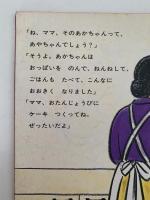 「ね、ママ、そのあかちゃんって、
あやちゃんでしょう？」
「そうよ。あかちゃんは
おっぱいを のんで、ねんねして、
ごはんも たべて、こんなに
おおきく なりました」
「ママ、おたんじょうびに
ケーキ つくってね。
ぜったいだよ」